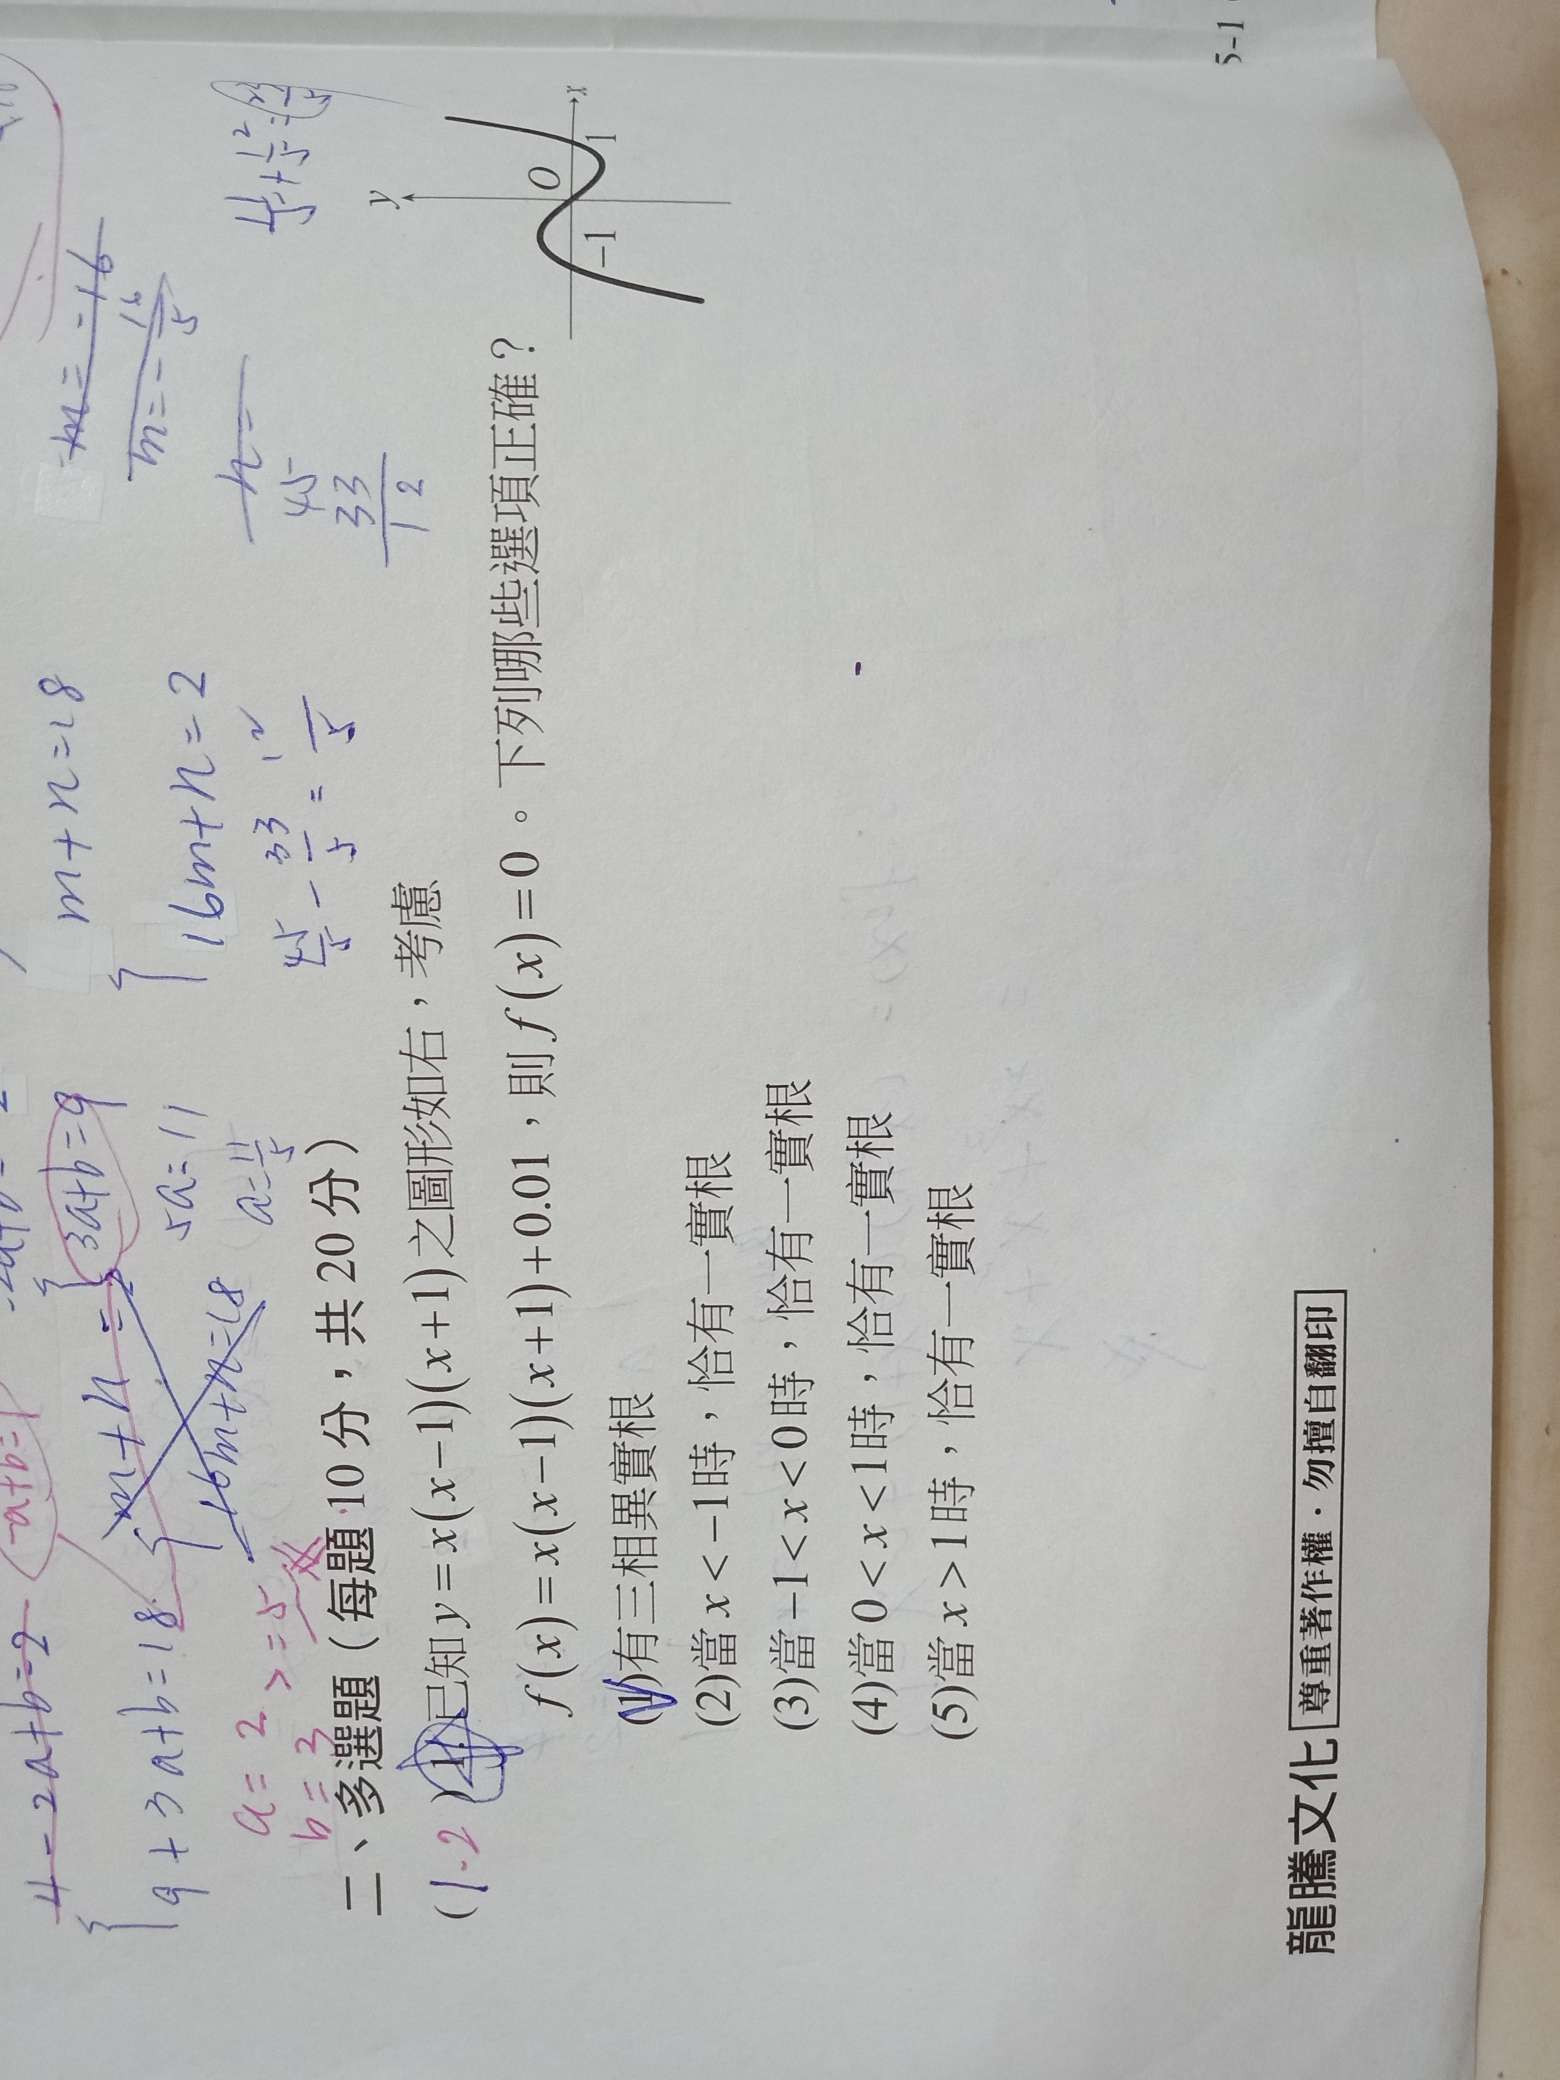 4-2a+b=2
-a+b=1
9+3a+b=18
3a+b=9
m+n=2
16m+n=18
5a=11
a=11/5
m+n=18
16m+n=2
45/5-33/5=12/5
m=-16
m=-16/5
n=
45
33
12
a=2
b=3
>=5
二、多選題(每題10分,共20分)
(1.2)21.已知y=x(x-1)(x+1)之圖形如右,考慮
f(x)=x(x-1)(x+1)+0.01,則f(x)=0。下列哪些選項正確?
(1)有三相異實根
(2)當x<-1時,恰有一實根
(3)當-1<x<0時,恰有一實根
(4)當0<x<1時,恰有一實根
(5)當x>1時,恰有一實根
y
O
x
-1
1
龍騰文化 尊重著作權·勿擅自翻印
5-1